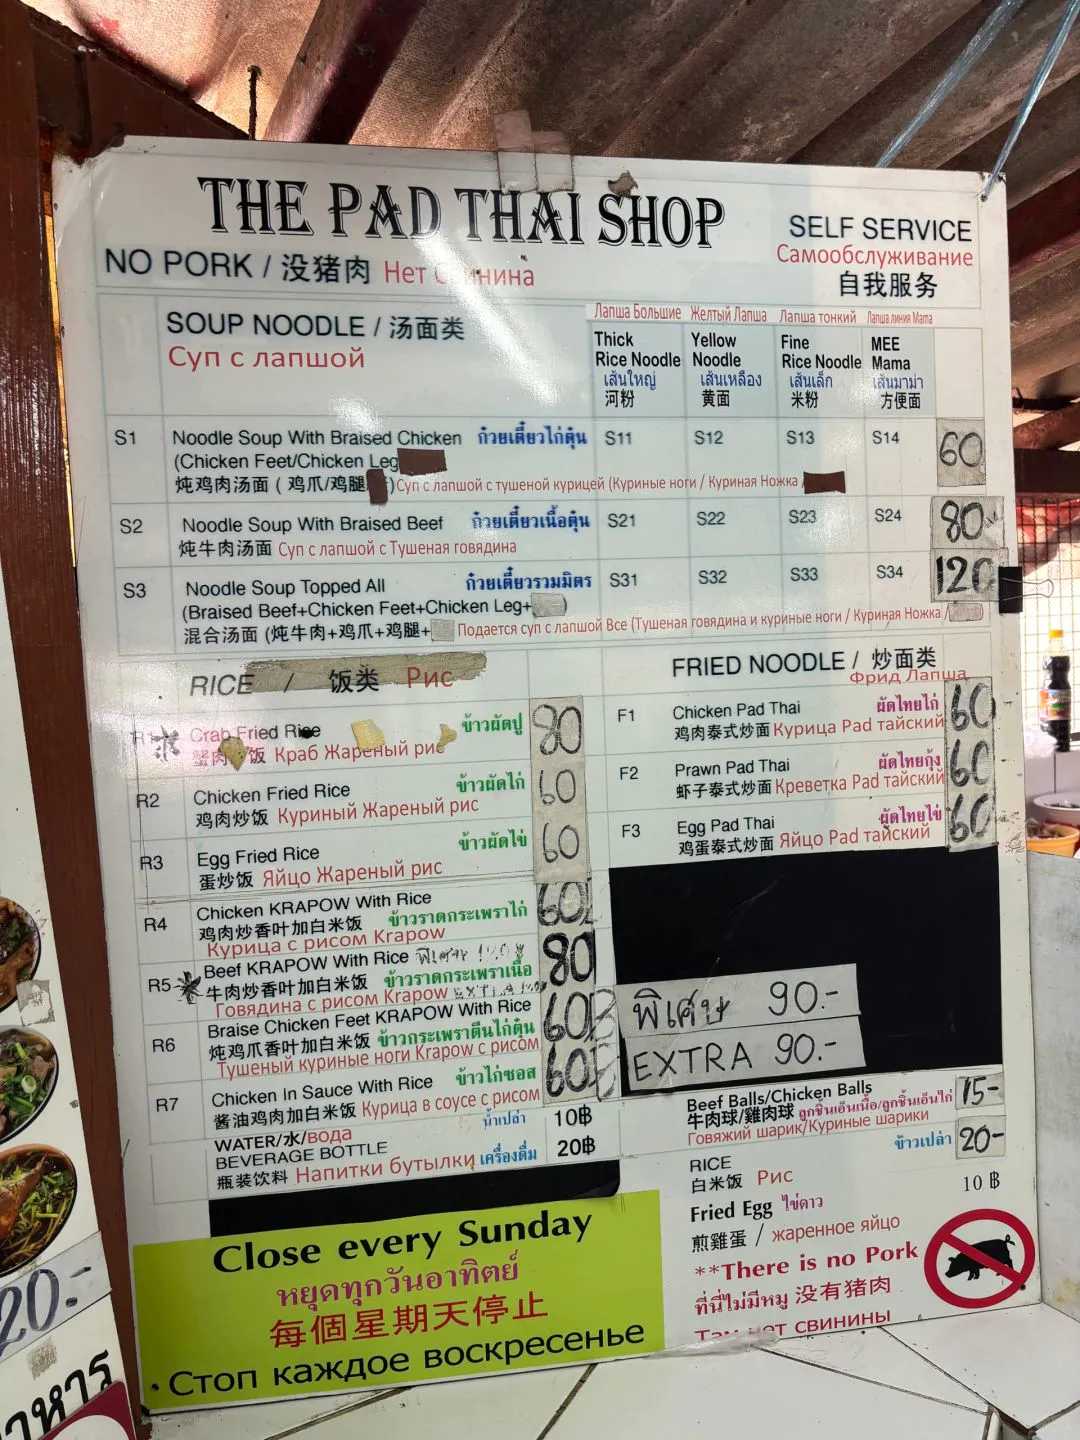 THE PAD THAI SHOP
NO PORK / 没猪肉 Нет
SELF SERVICE
Самообслуживание
自我服务
SOUP NOODLE / 汤面类
Суп с лапшой
Лапша Большие Желтый Лапша Лапша тонкий Лапша линия Mama
Thick Rice Noodle เส้นใหญ่ 河粉
Yellow Noodle เส้นเหลือง 黄面
Fine Rice Noodle เส้นเล็ก 米粉
MEE Mama เส้นมาม่า 方便面
S1 Noodle Soup With Braised Chicken ก๋วยเตี๋ยวไก่ตุ๋น S11 S12 S13 S14 60
(Chicken Feet/Chicken Leg
炖鸡肉汤面 ( 鸡爪/鸡腿 ) Суп с лапшой с тушеной курицей (Куриные ноги / Куриная Ножка /
S2 Noodle Soup With Braised Beef ก๋วยเตี๋ยวเนื้อตุ๋น S21 S22 S23 S24 80
炖牛肉汤面 Суп с лапшой с Тушеная говядина
S3 Noodle Soup Topped All ก๋วยเตี๋ยวรวมมิตร S31 S32 S33 S34 120
(Braised Beef+Chicken Feet+Chicken Leg+ )
混合汤面 (炖牛肉+鸡爪+鸡腿+ Подается суп с лапшой Все (Тушеная говядина и куриные ноги / Куриная Ножка / )
RICE / 饭类 Рис
R1 Crab Fried Rice ข้าวผัดปู 80
蟹肉 饭 Краб Жареный рис
R2 Chicken Fried Rice ข้าวผัดไก่ 60
鸡肉炒饭 Куриный Жареный рис
R3 Egg Fried Rice ข้าวผัดไข่ 60
蛋炒饭 Яйцо Жареный рис
R4 Chicken KRAPOW With Rice 60
鸡肉炒香叶加白米饭 ข้าวราดกระเพราไก่
Курица с рисом Krapow
R5 Beef KRAPOW With Rice พิเศษ 80
牛肉炒香叶加白米饭 ข้าวราดกระเพราเนื้อ
Говядина с рисом Krapow EXTRA
R6 Braise Chicken Feet KRAPOW With Rice 60
炖鸡爪香叶加白米饭 ข้าวกระเพราตีนไก่ตุ๋น
Тушеный куриные ноги Krapow с рисом
R7 Chicken In Sauce With Rice ข้าวไก่ซอส 60
酱油鸡肉加白米饭 Курица в соусе с рисом
WATER/水/вода น้ำเปล่า 10฿
BEVERAGE BOTTLE
瓶装饮料 Напитки бутылки เครื่องดื่ม 20฿
FRIED NOODLE / 炒面类
Фрид Лапша
F1 Chicken Pad Thai ผัดไทยไก่ 60
鸡肉泰式炒面 Курица Pad тайский
F2 Prawn Pad Thai ผัดไทยกุ้ง 60
虾子泰式炒面 Креветка Pad тайский
F3 Egg Pad Thai ผัดไทยไข่ 60
鸡蛋泰式炒面 Яйцо Pad тайский
พิเศษ 90.-
EXTRA 90.-
Beef Balls/Chicken Balls 15-
牛肉球/雞肉球 ลูกชิ้นเอ็นเนื้อ/ลูกชิ้นเอ็นไก่
Говяжий шарик/Куриные шарики
ข้าวเปล่า 20-
RICE
白米饭 Рис
Fried Egg ไข่ดาว 10 ฿
煎雞蛋 / жаренное яйцо
**There is no Pork
ที่นี่ไม่มีหมู 没有猪肉
Там нет свинины
Close every Sunday
หยุดทุกวันอาทิตย์
每個星期天停止
Стоп каждое воскресенье
20.-
าหาร